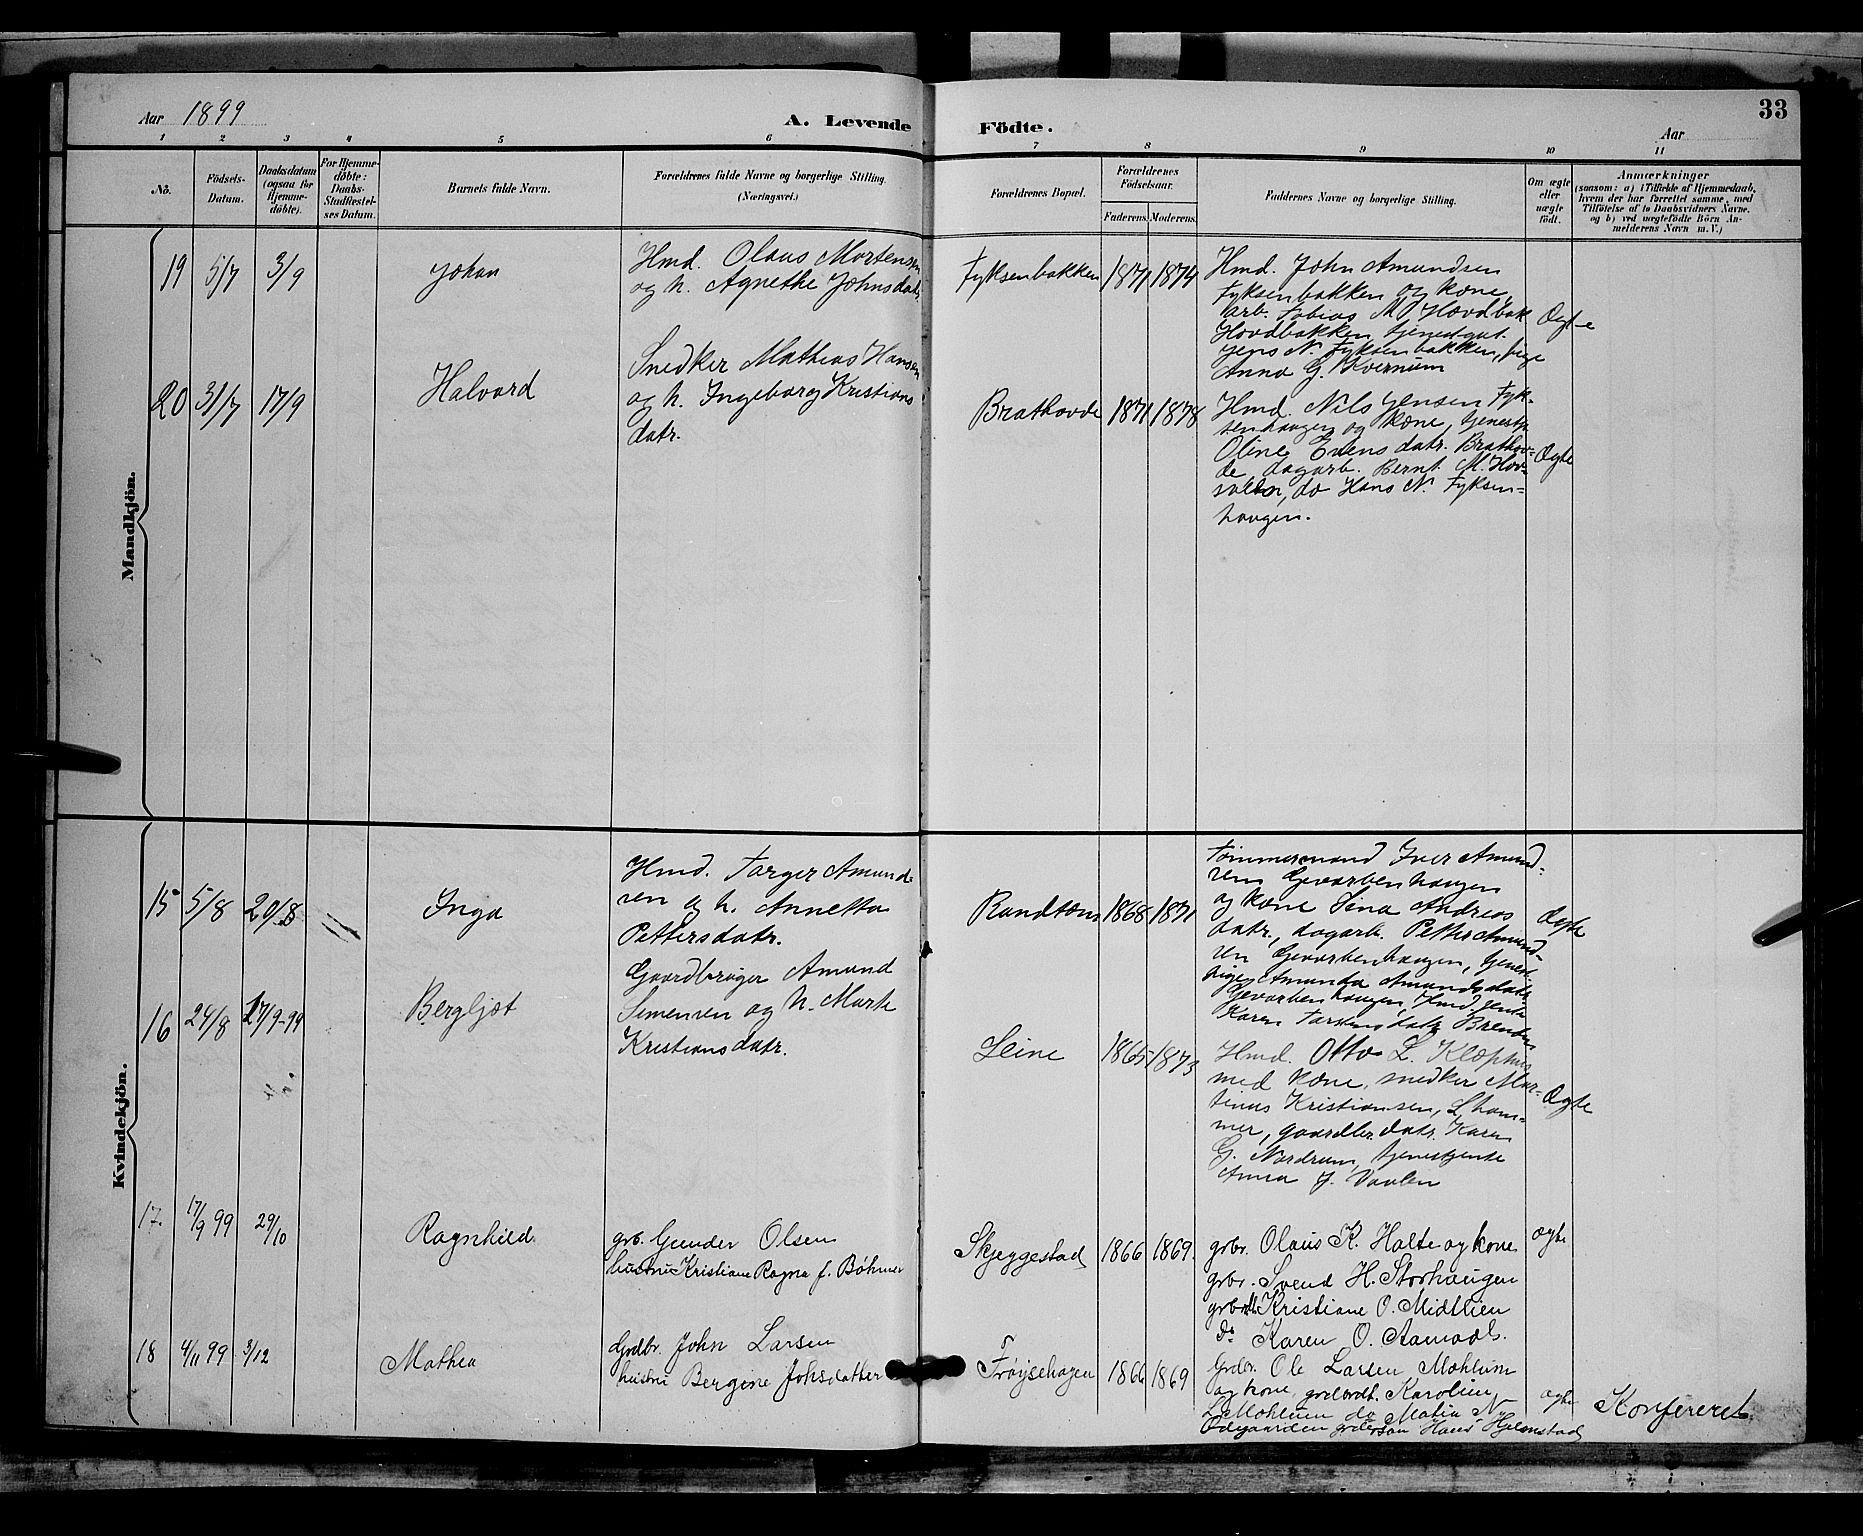 Aar 1899
A. Levende Födte.
Aar
33
1 2 3 4 5 6 7 8 9 10 11
No.
Födsels-Datum.
Daabsdatum (ogsaa for Hjemme-døbte).
For Hjemme-døbte: Daabs-Stadfæstel-ses Datum.
Barnets fulde Navn.
Forældrenes fulde Navne og borgerlige Stilling.
(Næringsvei.)
Forældrenes Bopæl.
Forældrenes Födselsaar.
Faderens. Moderens.
Faddernes Navne og borgerlige Stilling.
Om ægte eller uægte födt.
Anmærkninger
(saasom: a) i Tilfælde af Hjemmedaab,
hvem der har forrettet samme, med
Tilföielse af to Daabsvidners Navne,
og b) ved uægtefödte Börn An-
melderens Navn m. V.)
Mandkjön.
19 5/7 3/9 Johan
Hmd. Olaus Mortensen
og h. Agnethe Johnsdatr.
Fyksenbakken 1871 1874
Hmd. John Amundsen
Fyksenbakken og kone,
arb. Tobias M. Hovdbak
Hovdbakken, tjenestgut
Jens N. Fyksenbakken, pige
Anna G. Kvernum
Ægte
20 31/7 17/9 Halvard
Snedker Mathias Hansen
og h. Ingeborg Kristians
datr.
Brathovde 1871 1878
Hmd. Nils Jensen Fyk-
senhaugen og kone, tjenestp.
Oline Evensdatr. Brathov-
de dagarb. Bernt M. Hov-
, do Hans N. Fyksen-
haugen.
Ægte
Kvindekjön.
15 5/8 20/8 Inga
Hmd. Torger Amund-
sen og h. Annetta
Pettersdatr.
Randtøms 1868 1871
Tømmermand Iver Amund-
sen Gevarbenhaugen
og kone Sina Andreas
datr., dagarb. Petter Amund-
sen Gevarbenhaugen, tjenest-
pige Amunda Amundsdatr.
Gevarbenhaugen, Hmd.jente
Karen Torstensdatr. Brenden
Ægte
16 24/8 17/9-99 Bergljot
Gaardbruger Amund
Simensen og h. Marte
Kristiansdatr.
Leine 1865 1873
Hmd. Otto L. Kløphus
med kone, snedker Mar-
tinus Kristiansen, L.ham-
mer, gaardbr.datr. Karen
G. Nordrum, tjenestjente
Anna J. Vaalen
Ægte
17. 17/9 99 29/10 Ragnhild.
grb. Gunder Olsen
hustru Kristiane Ragna f. Bøhmer
Skjeggestad 1866 1869.
grbr. Olaus K. Holte og kone
grbr. Svend H. Storhaugen
grbrdtr. Kristiane O. Midtlien
Do Karen O. Aamodt.
ægte
18 4/11 99 3/12 Mathea
Grdbr. John Larsen
hustru Bergine Johsdatter
Frøysehagen 1866 1869
Grdbr. Ole Larsen Mæhlum
og kone, grdbrdt. Karoline
L. Mæhlum do Matia N.
Ødegaarden grdbrsøn Hans Hjelmstad
ægte
Konfereret.